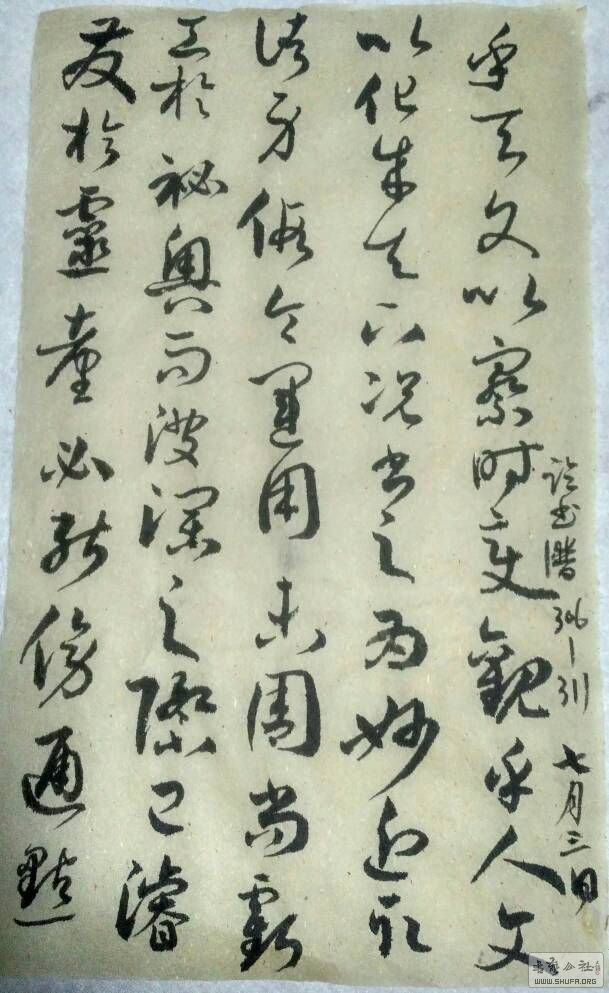 乎天文以察時變觀乎人文
以化成天下况書之為妙近取
諸身假令運用未周尚虧
工於祕奧而波瀾之際已濬
發於靈臺必能傍通點
书譜 306-311 七月三日
書藝公社
WWW.SHUFA.ORG